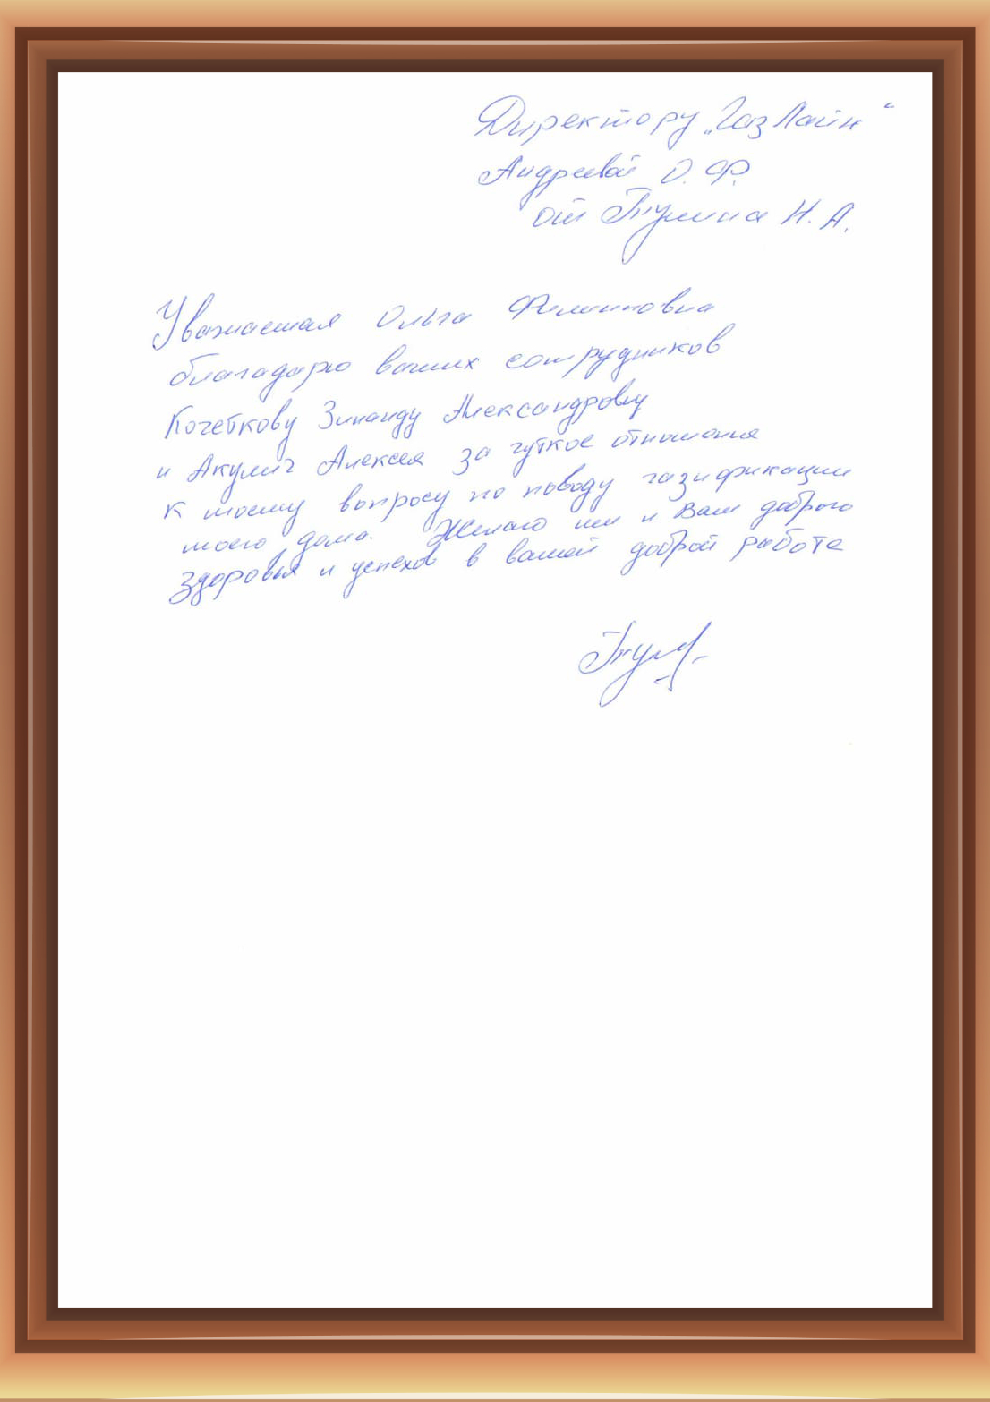 Директору „Газ Лайн“
Андреевой О. Ф.
от Тумина Н. А.
Уважаемая Ольга Филипповна
благодарю ваших сотрудников
Кочеткову Зинаиду Александровну
и Акулич Алексея за чуткое отношения
к моему вопросу по поводу газификации
моего дома. Желаю им и Вам доброго
здоровья и успехов в вашей доброй работе